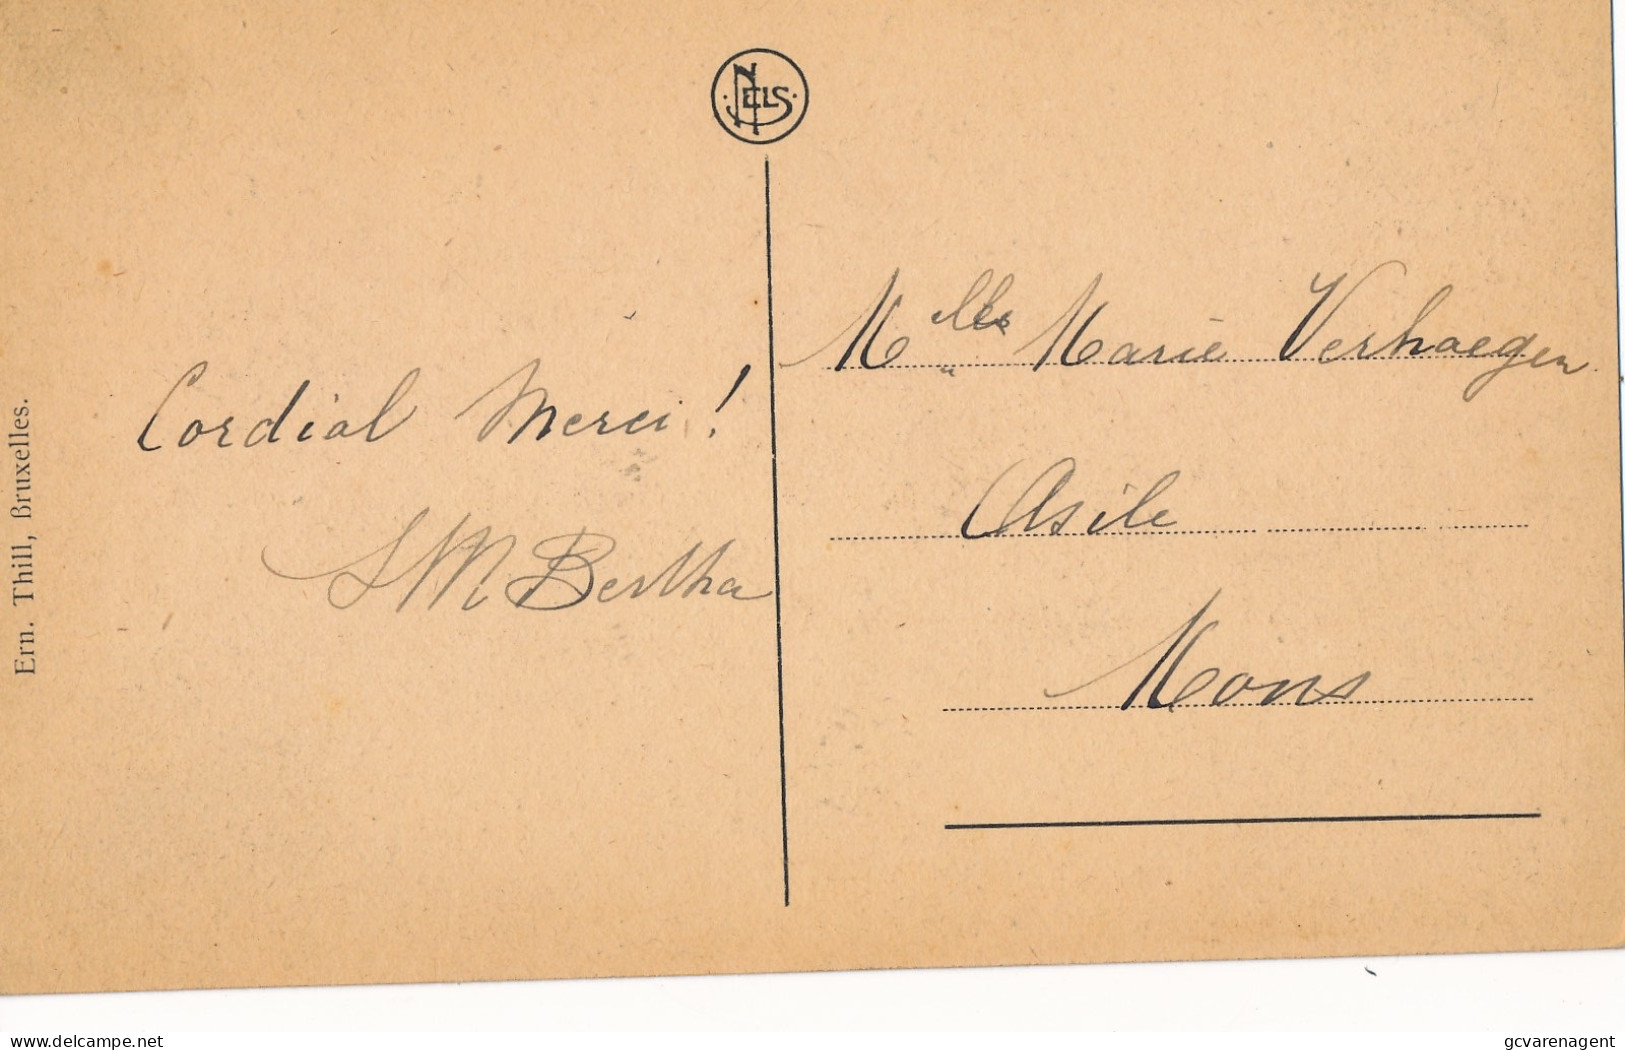 NELS
Cordial Merci!
SM Bertha
Mlles Marie Verhaegen
Asile
Mons
Ern. Thill, Bruxelles.
delcampe.net
gcvarenagent